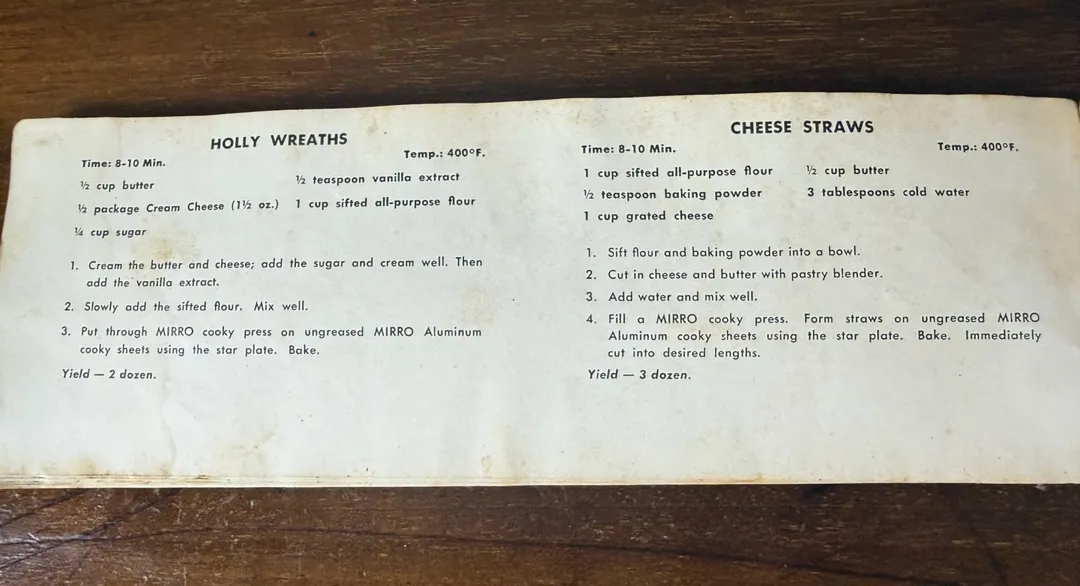 HOLLY WREATHS
Time: 8-10 Min.
Temp.: 400°F.
½ cup butter
½ package Cream Cheese (1½ oz.)
¼ cup sugar
½ teaspoon vanilla extract
1 cup sifted all-purpose flour
1. Cream the butter and cheese; add the sugar and cream well. Then
add the vanilla extract.
2. Slowly add the sifted flour. Mix well.
3. Put through MIRRO cooky press on ungreased MIRRO Aluminum
cooky sheets using the star plate. Bake.
Yield — 2 dozen.
CHEESE STRAWS
Time: 8-10 Min.
Temp.: 400°F.
1 cup sifted all-purpose flour
½ teaspoon baking powder
1 cup grated cheese
½ cup butter
3 tablespoons cold water
1. Sift flour and baking powder into a bowl.
2. Cut in cheese and butter with pastry blender.
3. Add water and mix well.
4. Fill a MIRRO cooky press. Form straws on ungreased MIRRO
Aluminum cooky sheets using the star plate. Bake. Immediately
cut into desired lengths.
Yield — 3 dozen.